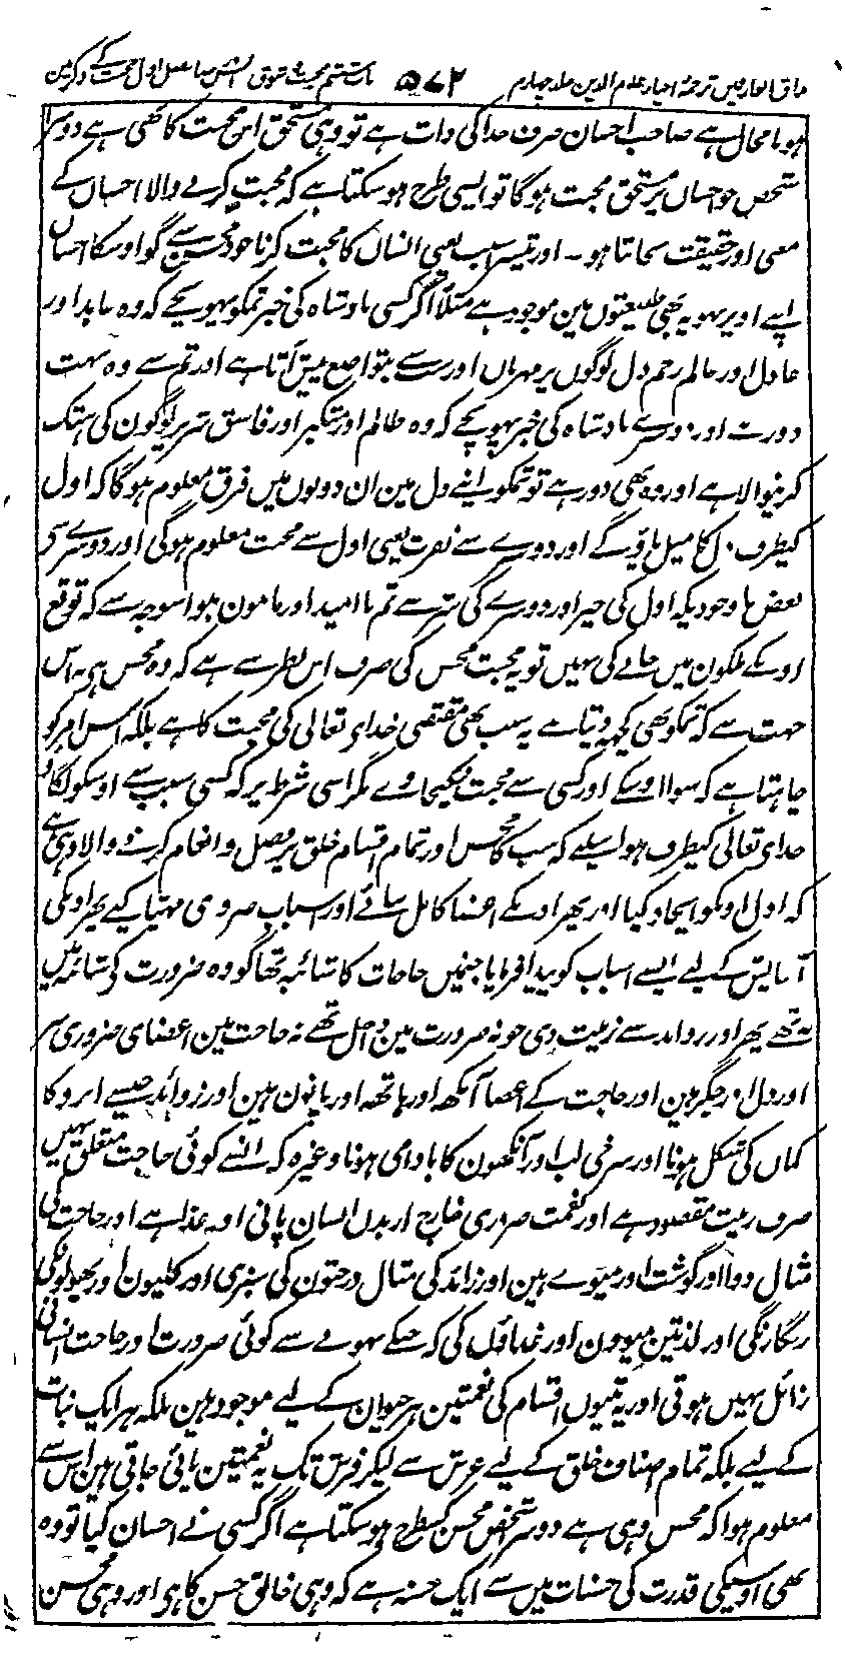 مذاق العارفین ترجمۂ احیاء علوم الدین جلد چہارم ۵۷۲ باب ششم محبت و شوق انس رضا فصل اول محبت کے ذکر مین
ہونا محال ہے صاحب احسان صرف خدا کی ذات ہے تو وہی مستحق اس محبت کا بھی ہے دوسرا
شخص جو احسان پر مستحق محبت ہوگا تو ایسی طرح ہو سکتا ہے کہ محبت کرنے والا احسان کے
معنی اور حقیقت نجانتا ہو ۔ اور تیسرا سبب یعنی انسان کا محبت کرنا خود محسن سے گو اوسکا احسان
اپنے اوپر نہو یہ بھی طبیعتوں مین موجود ہے مثلاً اگر کسی بادشاہ کی خبر تمکو پہونچے کہ وہ عابد اور
عادل اور عالم رحم دل لوگوں پر مہربان اور سب سے بتواضع پیش آتا ہے اور تم سے وہ بہت
دور ہے اور دوسرے بادشاہ کی خبر پہونچے کہ وہ ظالم اور متکبر اور فاسق شریر لوگون کی ہتک
کرنیوالا ہے اور وہ بھی دور ہے تو تمکو اپنے دل مین ان دونوں میں فرق معلوم ہوگا کہ اول
کیطرف دل کا میل پاؤگے اور دوسرے سے نفرت یعنی اول سے محبت معلوم ہوگی اور دوسرے سے
بغض باوجودیکہ اول کی خیر اور دوسرے کی شر سے تم نا امید اور مامون ہو اسوجہ سے کہ توقع
اونکے ملکون میں جانے کی نہیں تو یہ محبت محسن کی صرف اس نظر سے ہے کہ وہ محسن ہی نہ اس
جہت سے کہ تمکو بھی کچھ دیتا ہے یہ سبب بھی مقتضی خدای تعالی کی محبت کا ہے بلکہ اس امر کو
چاہتا ہے کہ سوا اوسکے اور کسی سے محبت نکیجاوے مگر اسی شرط پر کہ کسی سبب سے اوسکو لگاؤ
خدای تعالی کیطرف ہو اسلیے کہ سب کا محسن اور تمام اقسام خلق پر فضل و انعام کرنے والا وہی ہے
کہ اول اونکو ایجاد کیا اور پھر اونکے اعضا کامل بنائے اور اسباب ضروری مہیا کیے پھر اونکی
آسایش کے لیے ایسے اسباب کو پیدا فرمایا جنمیں حاجات کا شائبہ تھا گو وہ ضرورت کے شائبہ میں
نہ تھے پھر اور زوائد سے زینت دی جو نہ ضرورت مین داخل تھے نہ حاجت مین اعضای ضروری سر
اور دل اور جگر ہین اور حاجت کے اعضا آنکھ اور ہاتھ اور پانون ہین اور زوائد جیسے ابرو کا
کمان کی شکل ہونا اور سرخی لب اور آنکھون کا بادامی ہونا وغیرہ کہ انسے کوئی حاجت متعلق نہیں
صرف زینت مقصود ہے اور نعمت ضروری خارج از بدن انسان پانی اور غذا ہے اور حاجت کی
مثال دوا اور گوشت اور میوے ہین اور زائد کی مثال درختون کی سبزی اور کلیون اور پھولونکی
رنگارنگی اور لذتین میوون اور غذاؤں کی کہ جنکے نہونے سے کوئی ضرورت اور حاجت انسانی
زائل نہیں ہوتی اور یہ تینوں اقسام کی نعمتین ہر حیوان کے لیے موجود ہین بلکہ ہر ایک نبات
کے لیے بلکہ تمام اصناف خلق کے لیے عرش سے لیکر فرش تک یہ نعمتین پائی جاتی ہین اس سے
معلوم ہوا کہ محسن وہی ہے دوسرا شخص محسن کسطرح ہو سکتا ہے اگر کسی نے احسان کیا تو وہ
بھی اوسیکی قدرت کی حسنات میں سے ایک حسنہ ہے کہ وہی خالق حسن کا ہی اور وہی محسن